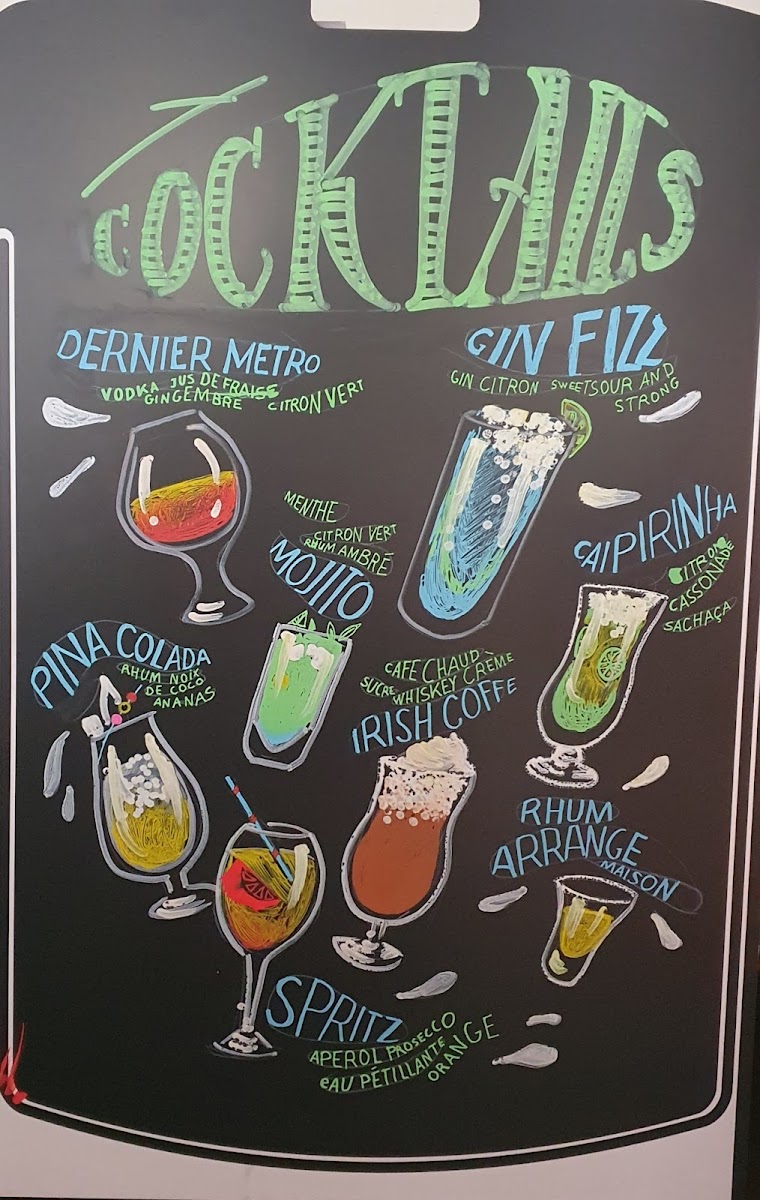 COCKTAILS
DERNIER METRO
VODKA JUS DE FRAISE
GINGEMBRE CITRON VERT
GIN FIZZ
GIN CITRON SWEETSOUR AND
STRONG
MENTHE
CITRON VERT
RHUM AMBRÉ
MOJITO
CAIPIRINHA
CITRON
CASSONADE
SACHAÇA
PINA COLADA
RHUM NOIX
DE COCO
ANANAS
CAFE CHAUD
SUCRE WHISKEY CRÈME
IRISH COFFE
RHUM
ARRANGE
MAISON
SPRITZ
APEROL PROSECCO
eAU PÉTILLANTE
ORANGE